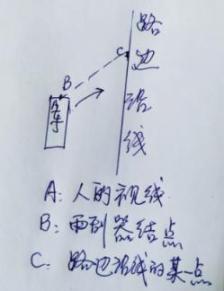 路边沿线
C
B
车
A: 人的视线
B: 雨刮器结点
C. 路边沿线的某一点